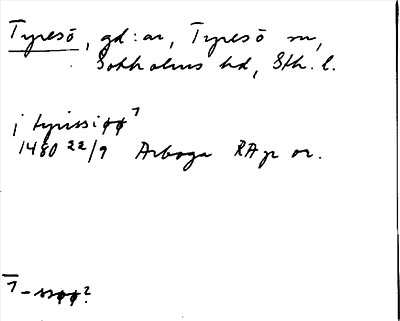 Tyresö, gd:ar, Tyresö sn,
Sotholms hd, Sth. l.
j tyrissiøø ⁊
1480 22/9 Arboga RAp or.
⁊ -ssøø?